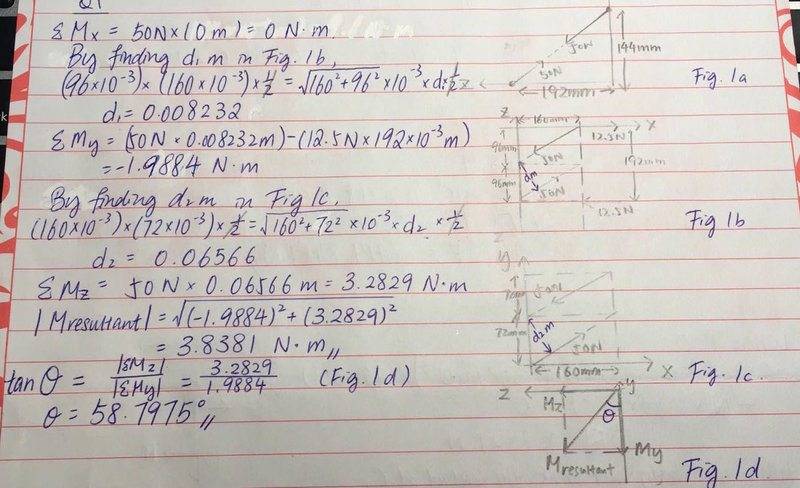 Q1
ΣMx = 50N×(0m) = 0 N·m.
By finding d₁ m in Fig. 1b,
(96×10⁻³)×(160×10⁻³)×½ = √160²+96² ×10⁻³ × d₁×½
d₁ = 0.008232
ΣMy = (50N × 0.008232m)-(12.5N×192×10⁻³m)
= -1.9884 N·m
By finding d₂ m in Fig 1c,
(160×10⁻³)×(72×10⁻³)×½ = √160²+72² ×10⁻³ × d₂ ×½
d₂ = 0.06566
ΣMz = 50N × 0.06566 m = 3.2829 N·m
|Mresultant| = √(-1.9884)²+(3.2829)²
= 3.8381 N·m
tanθ = |ΣMz| / |ΣMy| = 3.2829 / 1.9884 (Fig. 1d)
θ = 58.7975°
50N
50N
144mm
z
192mm
Fig. 1a
z
160mm
x
12.5N
96mm
50N
192mm
x
96mm
d₁m
50N
12.5N
Fig 1b
z
y
50N
72mm
d₂m
50N
160mm
x
Fig. 1c.
z
y
Mz
θ
My
Mresultant
Fig. 1d